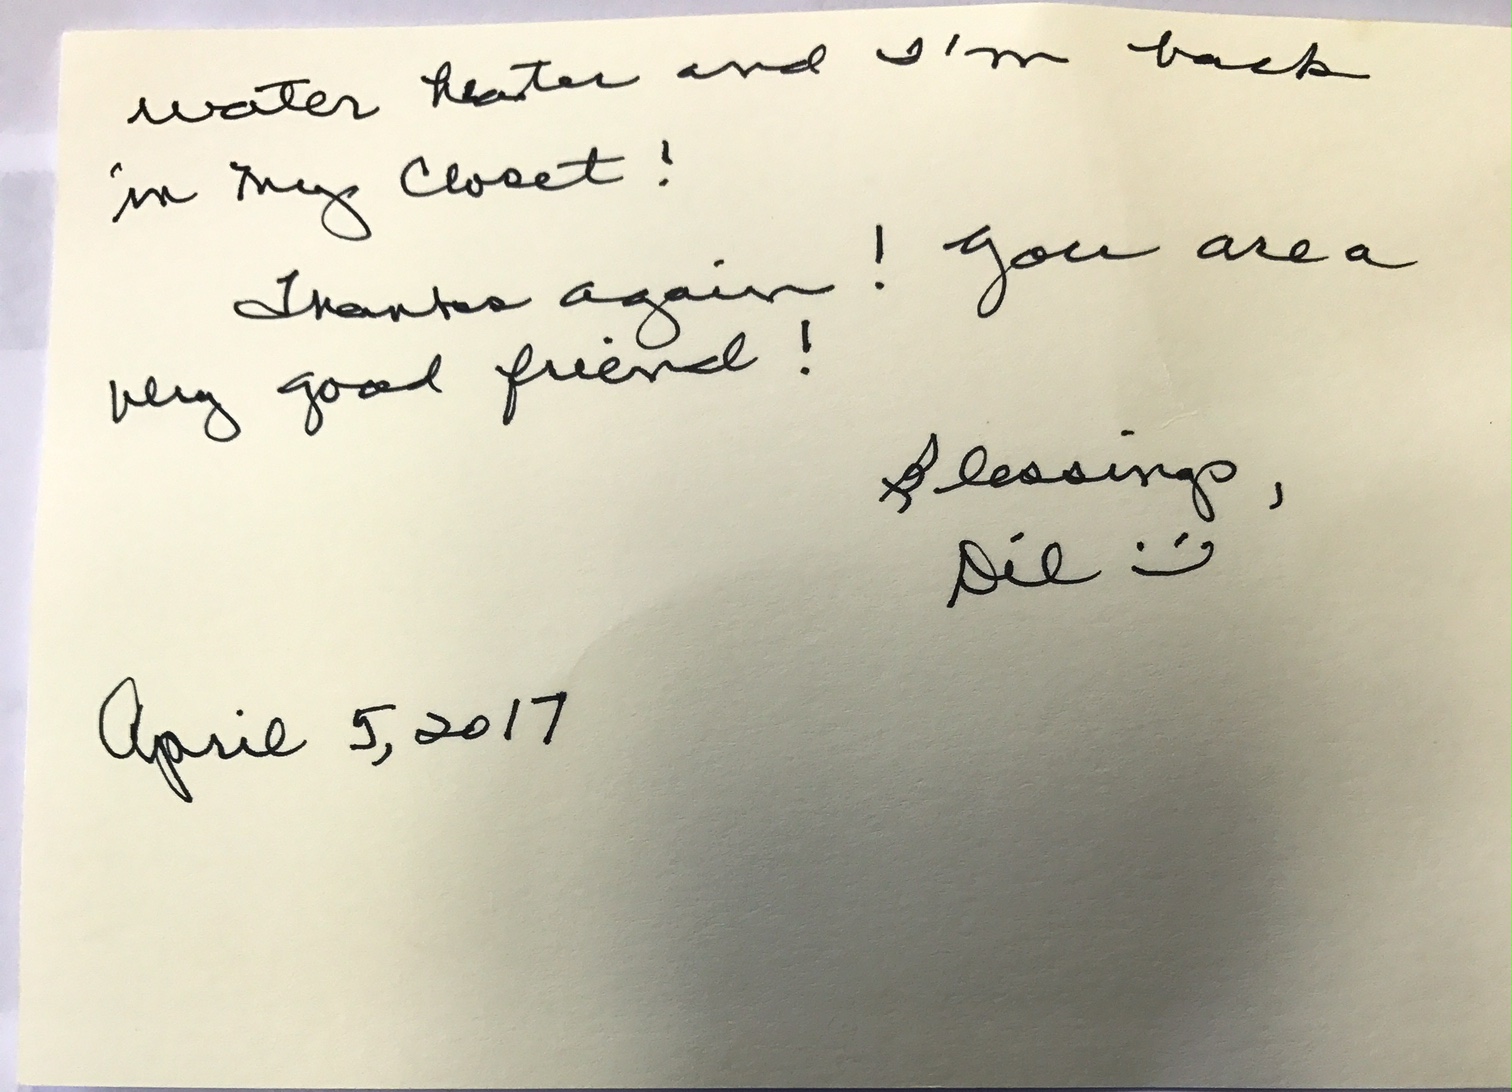 water heater and I'm back
in my closet!
Thanks again! You are a
very good friend!
Blessings,
Dil :)
April 5, 2017